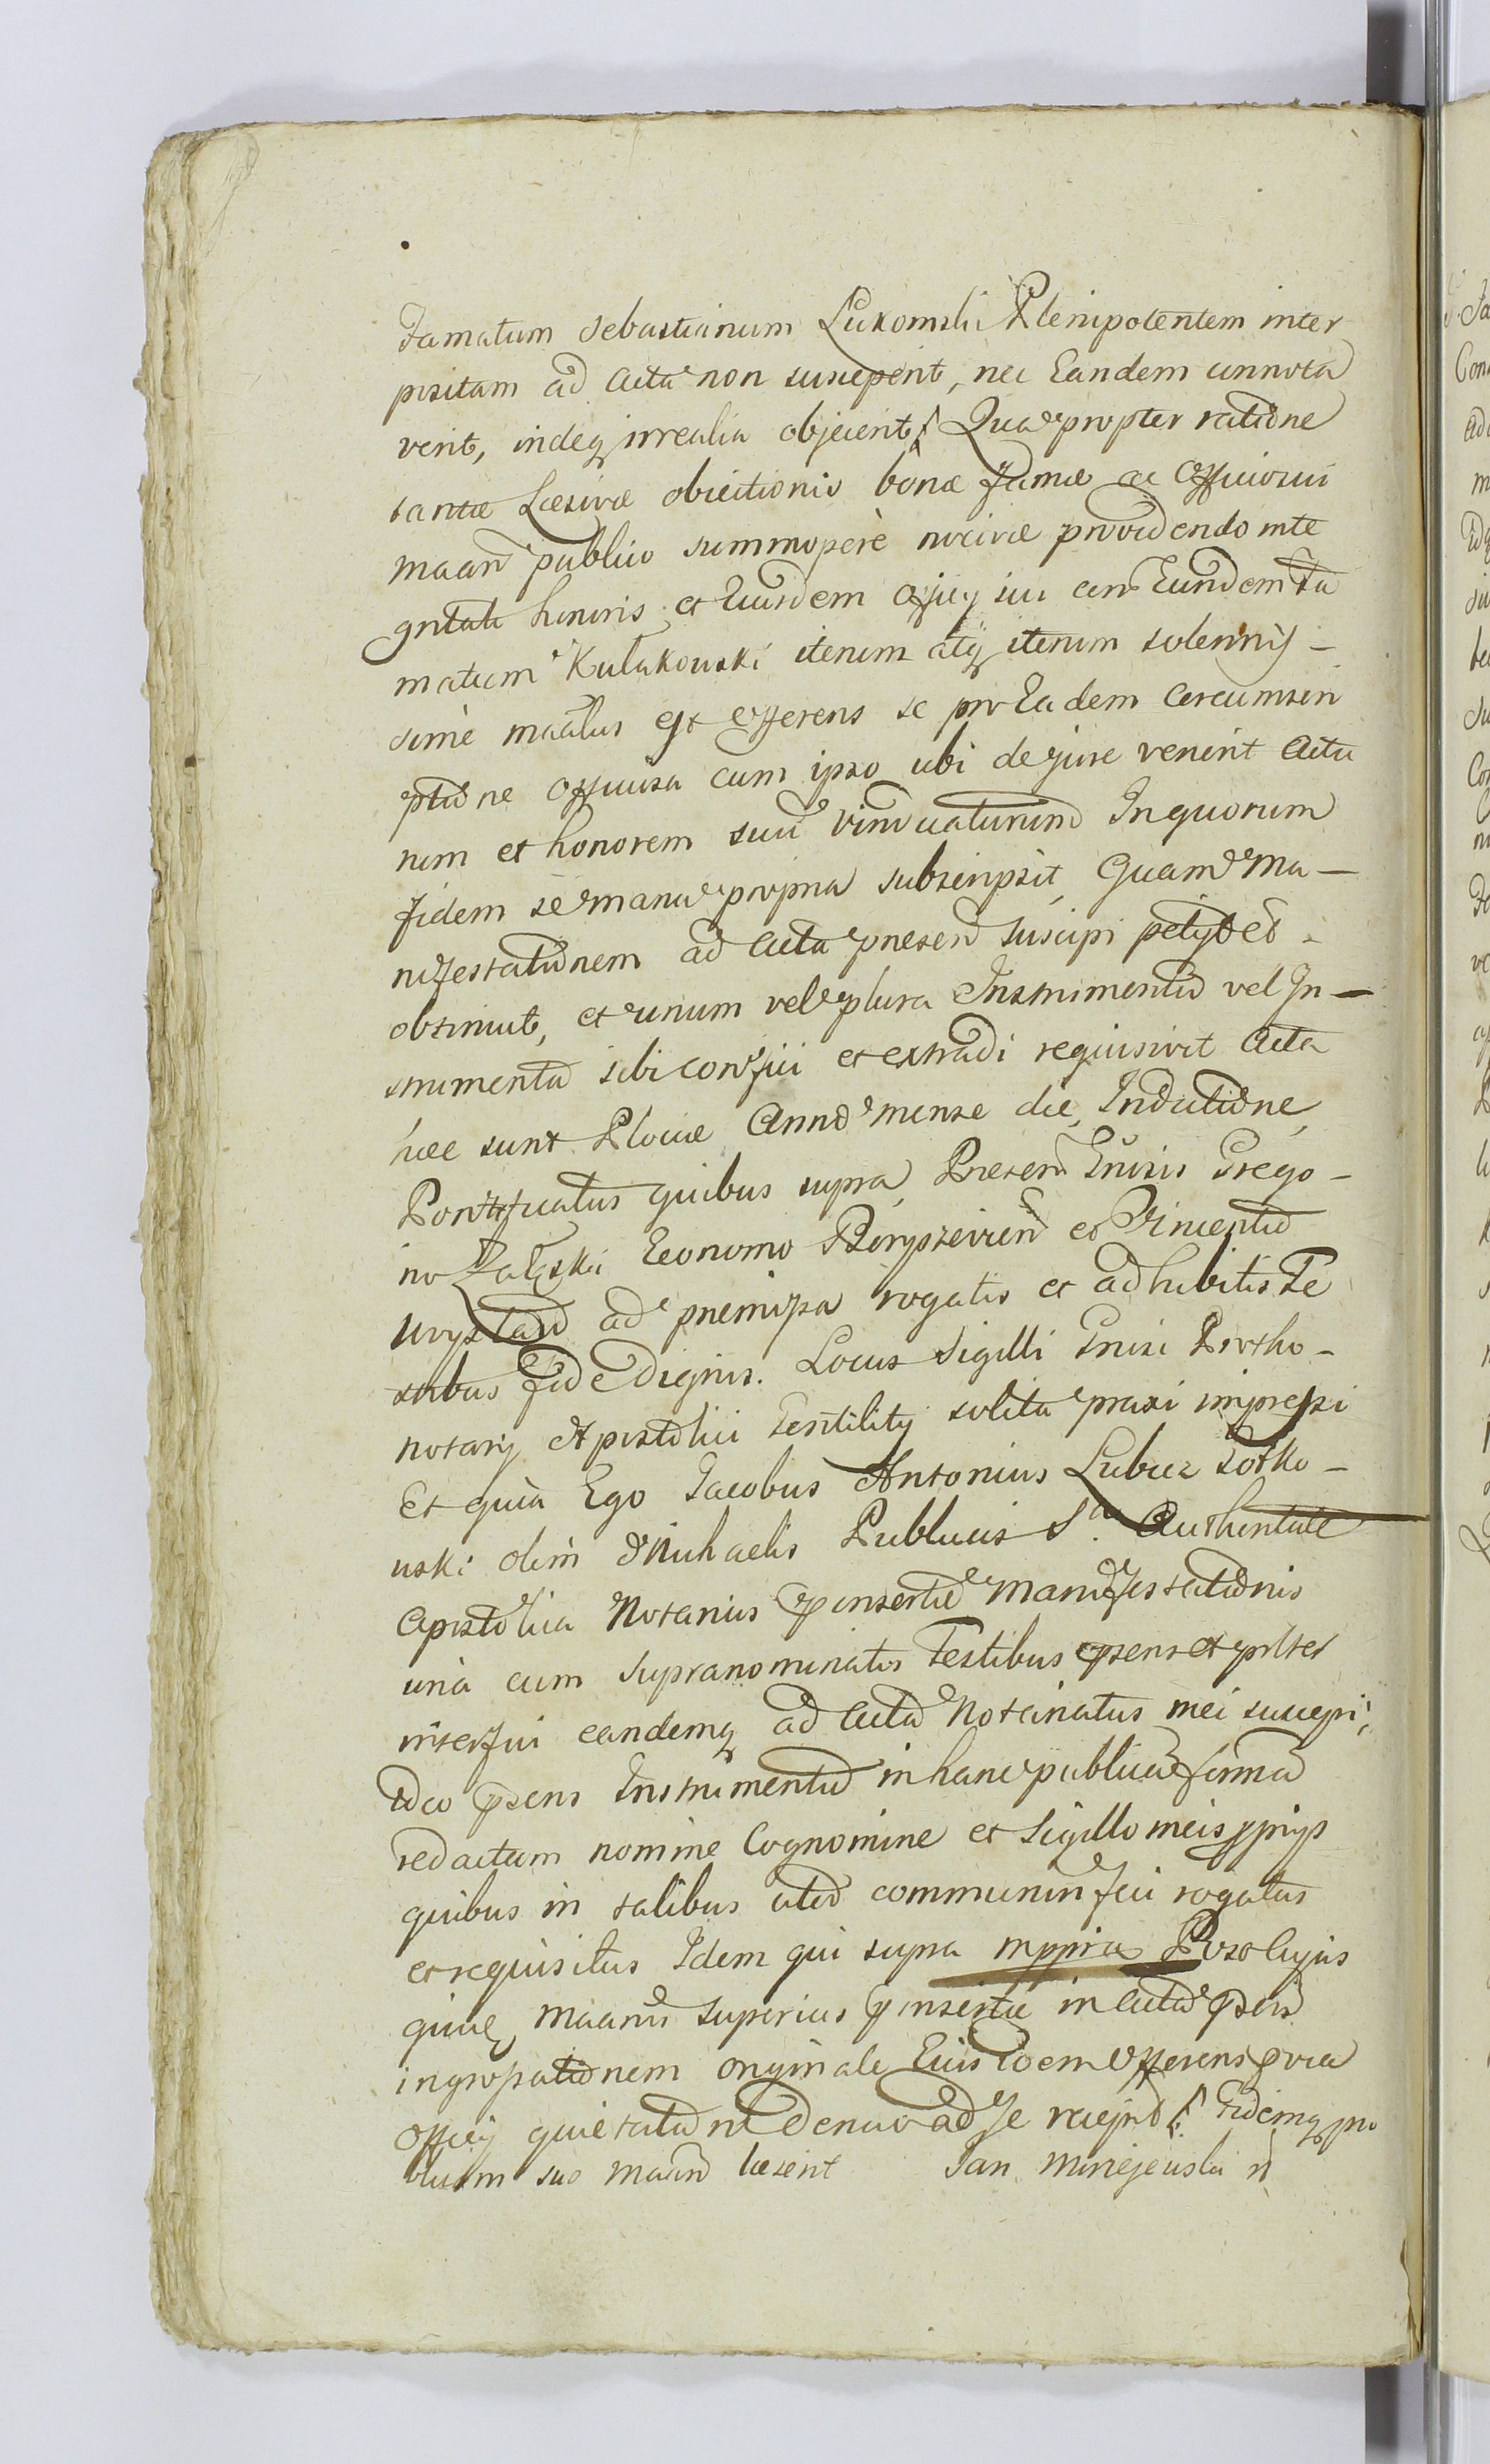 Famatum Sebastianum Łukomski Plenipotentem inter
positam ad Acta non susceperit, nec Eandem annota
verit, indeq irrealia objecerit. Qua propter ratione
tantæ Læsivæ obiectionis bonæ famæ ac Officiosui
maan publico summopere nocivæ providendo inte
gritati honoris et Eiusdem Officy sui con Eundem Fa
matum Kułakowski iterum atq iterum solenniſ-
sime maatus est offerens se pro Eadem Circumscri
ptione officiosa cum ipso ubi de jure venerit Actu
rum et honorem suũ vindicaturum In quorum
fidem se manu propria subscripsit, Quam Ma-
nifestationem ad Acta præsen suscipi petyt et
obtinuit, et unum vel plura Instrumentũ vel In-
strumenta sibi confici et extradi requisivit Acta
hæc sunt Plociæ Anno mense die, Indictione,
Pontificatus quibus supra, Præsen Grego-
rio Zaleski Economo et Vincentio
ad præmissa rogatis et adhibitis Te
stibus fide dignis. Locus Sigilli Protho-
notarij Apostolici Gentilitij solita praxi impressi
Et quia Ego Jacobus Antonius Lubicz Sotko-
wski olim Michaelis Publicus S. Authoritate
Apostolica Notarius insertæ Manifestationis
una cum supranominatis Testibus præsens et
interfui eandemq ad Acta Notariatus mei suscepi,
ideo præsens Instrumentũ in hanc publicã formã
redactum nomine Cognomine et Sigillo meis prijs
quibus in talibus utor communivi rogatus
et requisitus Idem qui supra mppria Post cujus
quid maanis superius insertæ in Acta præsen
ingrossationem originale Eius Idem Offerens
officy quietatione denuo ad se recepit. Eidemq
suo maan Jan